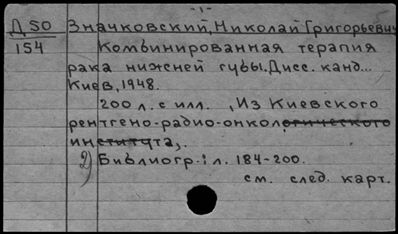 -1-
Д 50 Значковский, Николай Григорьевич
154 Комбинированная терапия
рака нижней губы. Дисс. канд...
Киев, 1948.
200 л. с илл. , Из Киевского
рентгено-радио-онкологического
института,.
2) Библиогр.: л. 184-200.
см. след. карт.